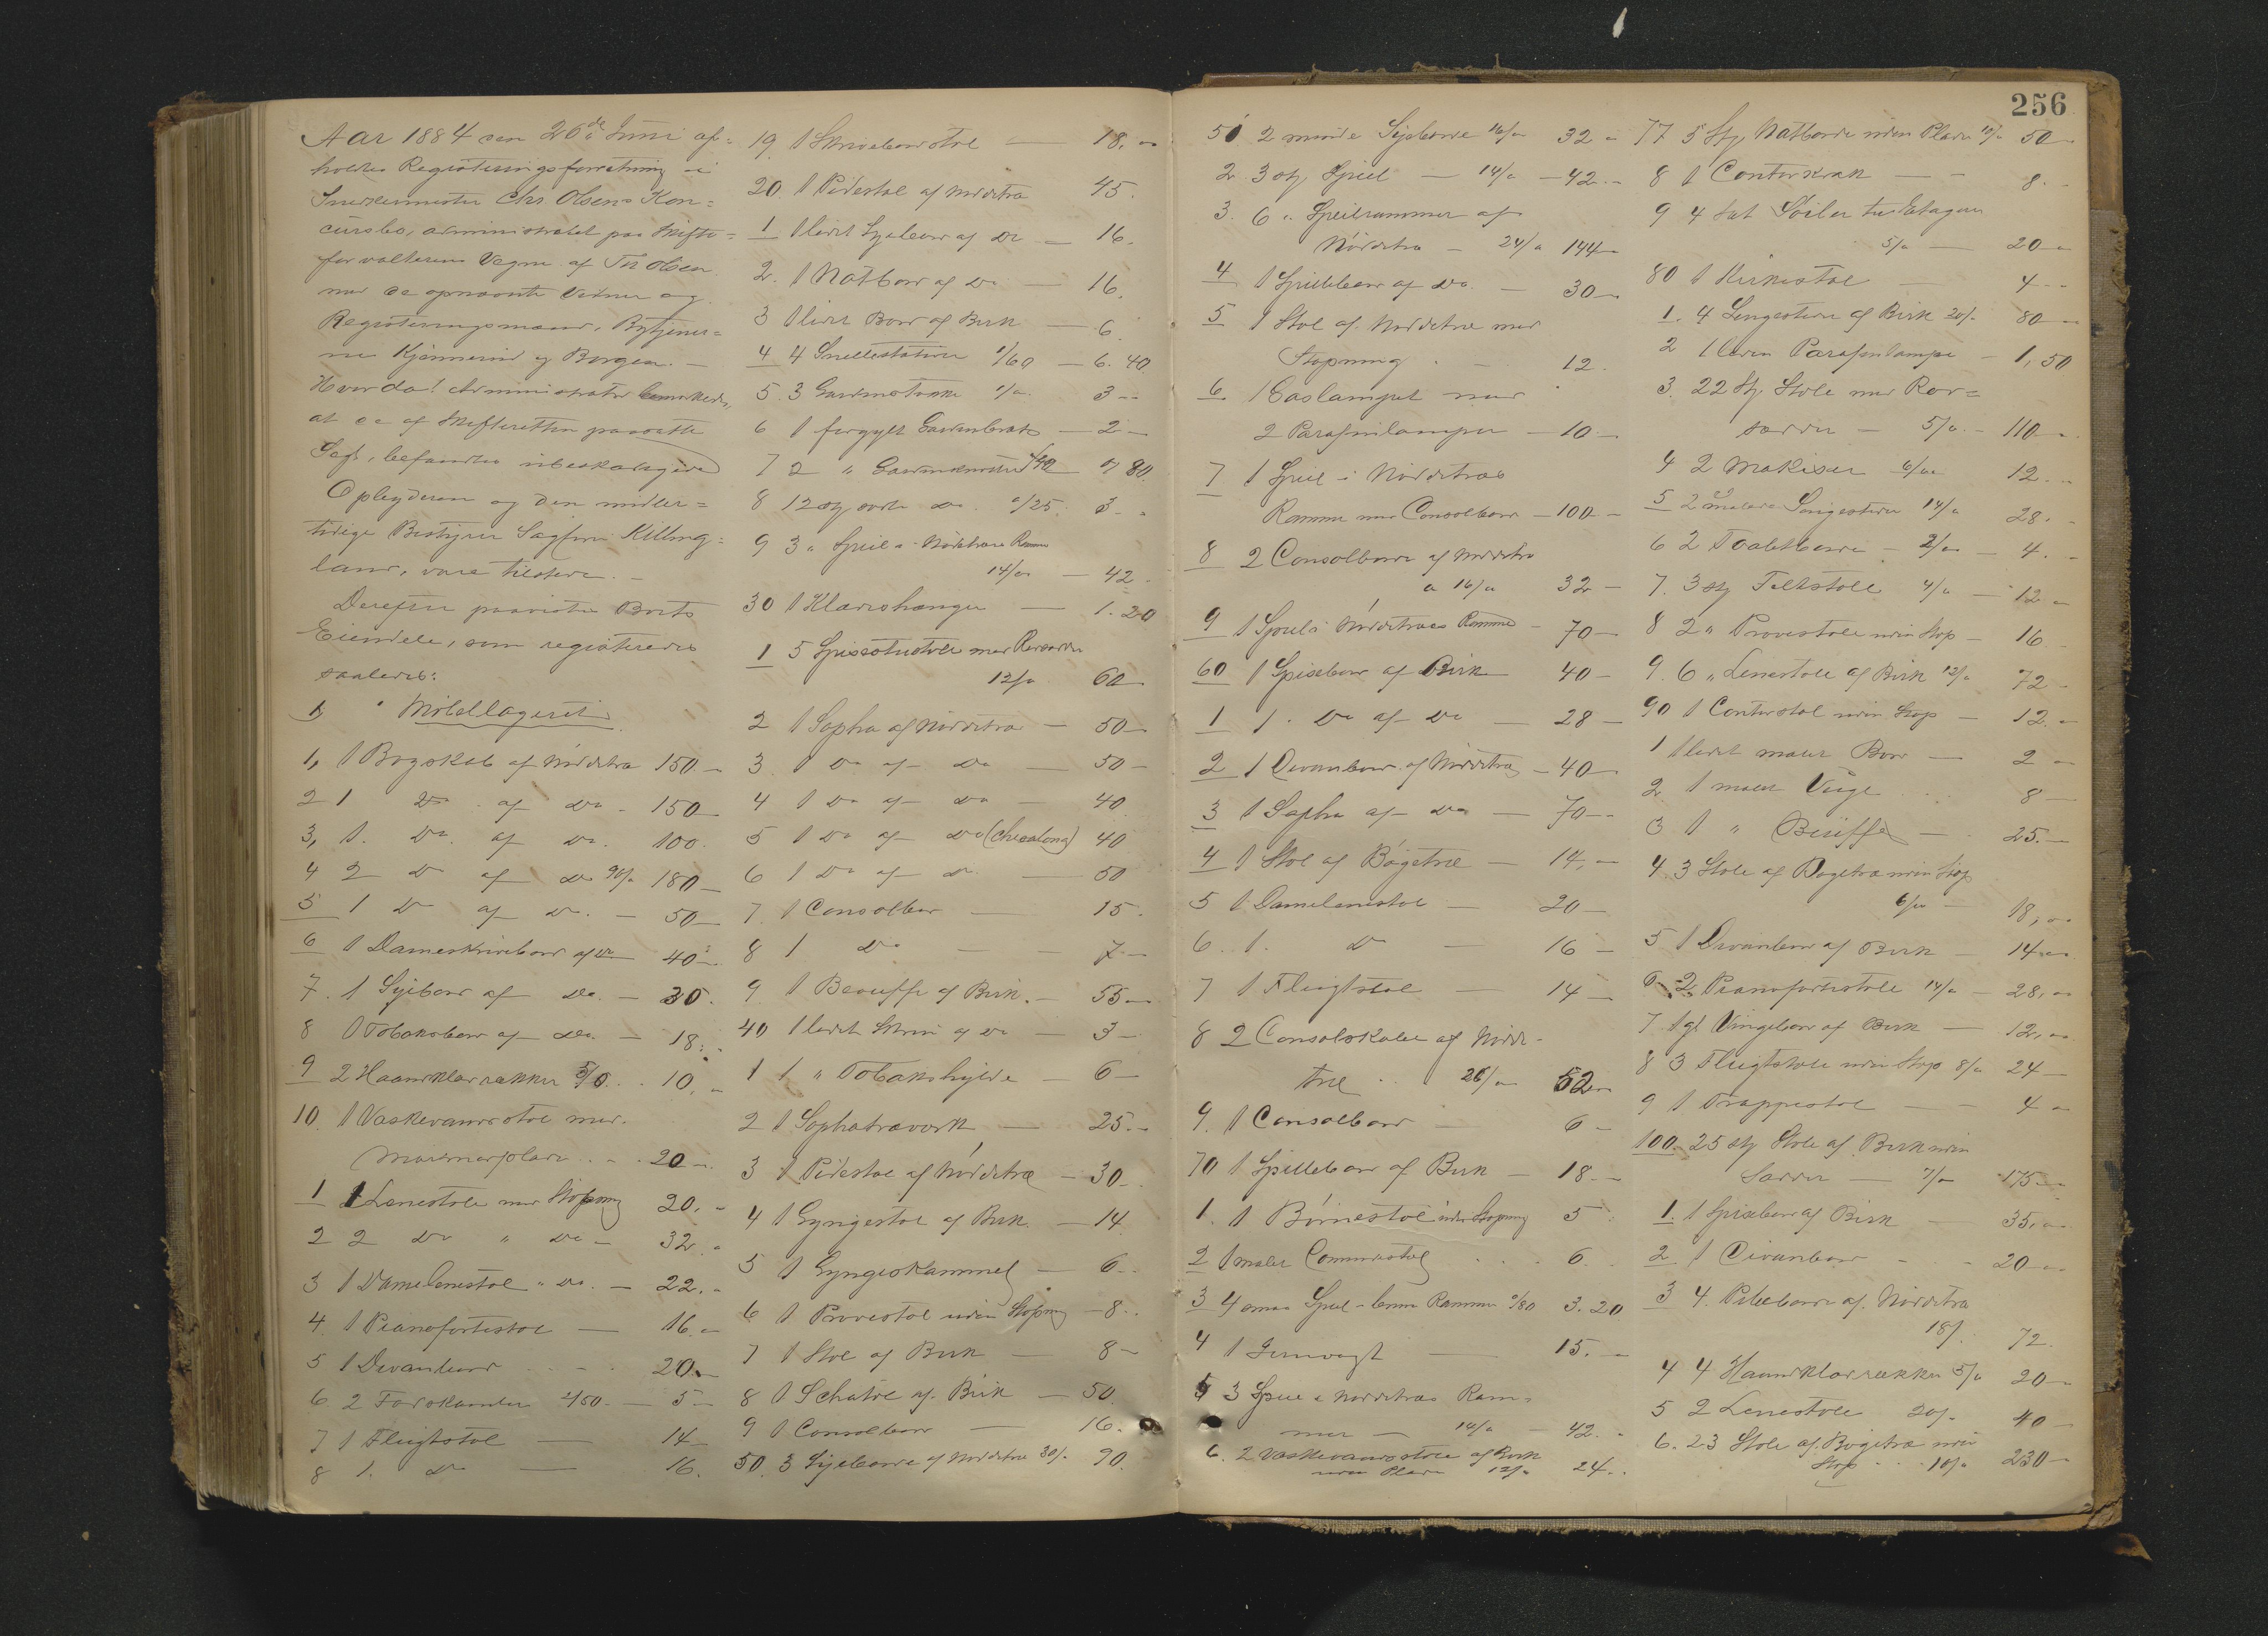 Aar 1884 den 26de Juni af=
holdtes Registreringsforretning i
Snedkermester Chr. Olsens Kon=
cursbo, administreret paa Skifte=
forvalterens Vegne af Th Olsen
med de opnævnte Vidner og
Registreringsmænd, Bytjener=
ne Kjønnerud og Borgen. —
Hvorda! Administrator bemærkede,
at de af Skifteretten paasatte
Segl, befandtes ubeskadigede
Opbyderen og den midler=
tidige Bestyrer Sagfører Killing=
land, vare tilstede. —
Derefter paavistes Boets
Eiendele, som registreredes
saaledes:
1, Møbellageret
1, 1 Bogskab af Nøddetræ 150. —
2 1 Do. af Do - 150 —
3, 1. Do. af Do. 100.
4 2 Do af Do 90/" 180 —
5 1 Do af Do. — 50 —
6 1 Dameskrivebord af Do 40 —
7. 1 Sybord af Do. — 30.
8 1 Tobaksbord af Do. — 18. "
9 2 Haandklærækker 5/0. . 10. "
10. 1 Vaskevandsstol med
Marmorplade . . 20 —.
1 1 Lænestole med Stopning 20. "
2 2 Do " Do — 32. "
3 1 Damelænestol " Do. — 22. "
4. 1 Pianofortestol — 16. "
5 1 Divanbord - . - 20. —
6 2 Fodskamler 2/50. — 5 —
7 1 Fløgtstol — 14 —
8 1. Do — 16.
19. 1 Skrivebordstol — 18, "
20. 1 Pidestal af Nøddetræ 45.
1 1 lidet Sybord af Do — 16.
2. 1 Natbord af Do — 16.
3 1 lidet Bord af Birk — 6.
4 4 Snellestativer 1/60 — 6.40
5. 3 Gardinstokke 1/" 3 —
6 1 forgyldt Gardinbræt — 2 —
7 2 " " /40 " 80.
8 12 stk sorte Do "/25. 3. "
9 3 " Speil i Nøddetræes Ramme
14/" — 42 -
30 1 Klædeshænger — 1.20
1 5 Spisestuestole med Rørsæder
12/" 60 —
2 1 Sopha af Nøddetræ — 50 —
3 1 Do af Do — 50 —
4 1 Do af Do — 40
5 1 Do af Do (Chesalong) 40
6 1 Do af Do — 50
7. 1 Consolbord — 15.
8 1 Do — 7. —
9 1 Beouffe af Birk. — 55 —
40 1 lidet Skrin af Do — 3 —
1 1 " Tobakshylde — 6 —
2 1 Sophatræværk — 25. —
3 1 Pidestal af Nøddetræ — 30 —
4 1 Gyngestol af Birk. — 14
5 1 Gyngeskammel — 6. -
6 1 Provestol uden Stopning — 8. -
7 1 Stol af Birk — 8 —
8 1 Schatol af Birk — 50.
9 1 Consolbord — 16.
50. 3 Syborde af Nøddetræ 30/. 90.
256
51 2 mindre Syborde 16/" 32 "
2 3 stk Speil — 14/" — 42. —
3. 6 " Speilrammer af
Nøddetræ — 24/" 144 —
4 1 Spillebord af Do. — 30 —
5 1 Stol af Nøddetræ med
Stopning . — 12.
6. 1 Gaslampet med
2 Parafinlamper — 10. —
7 1 Speil i Nøddetræes
Ramme med Consolbord — 100 —
8 2 Consolborde af Nøddetræ
a 16/" 32 —
9 1 Speil i Nøddetræes Ramme — 70 —
60 1 Spisebord af Birk 40 —
1 1. Do af Do — 28 —
2 1 Divanbord af Nøddetræ — 40 —
3 1 Sopha af Do — 70 —
4 1 Stol af Bøgetræ — 14, —
5 1 Damelænestol — 20 —
6. 1. Do — 16 —
7 1 Fløgtstol — 14 —
8 2 Consolskabe af Nødde-
træ . . 26/" 52 —
9. 1 Consolbord — 6 —
70 1 Spillebord af Birk — 18. —
1. 1 Børnestol uden Stopning 5.
2 1 malet Commodestol . . . 6.
3 4 smaa Speil - Ramme "/80 3.20
4 1 — 15. —
5 3 Speil i Nøddetræes Ram=
mer — 14/" — 42. "
6. 2 Vaskevandsstole af Birk
uden Plade 12/" 24. .
77 5 Stk Natborde uden Plade 10/" 50 —
8 1 Contorkrak — — 8. -
9 4 Sæt Søiler til Etagere
5/" — 20 "
80 1 Kirkestol — 4 - -
1. 4 Sengesteder af Birk 20/. 80 "
2 1 liden Parafinlampe — 1,50
3. 22 Stk Stole med Rør=
sæder — 5/" - 110 "
4 2 Makiser 6/" 12. "
5 2 malede Sengesteder 14/" 28. -
6 2 Toaletborde — 2/" — 4. -
7. 3 stk Feltstole 4/" — 12 "
8 2 " Provestole uden Stop — 16.
9. 6 " Lænestole af Birk 12/" 72 -
90 1 Contorstol uden Stop — 12. "
1 1 lidet malet Bord — 2 "
2 1 malet Vugge . . . 8 —
3 1 " Beuffe — 25. —
4 3 Stole af Bøgetræ uden Stop
6/" — 18, "
5 1 Divanbord af Birk — 14 "
6 2 Pianofortestole 14/" — 28, "
7 1 gl Vingebord af Birk — 12, "
8 3 Fløgtstole uden Stop 8/" 24 —
9 1 Trappestol — — 4 "
100. 25 stk Stole af Birk uden
Sæder — 7/" 175. —
1. 1 Spisebord af Birk — 35, "
2 1 Divanbord - - 20 "
3 4. Pilleborde af Nøddetræ
18/. 72.
4 4 Haandklærækker 5/" 20 —
5 2 Lenestole 20/. 40 —
6. 23 Stole af Bøgetræ uden
Stop . . . 10/" 230 —